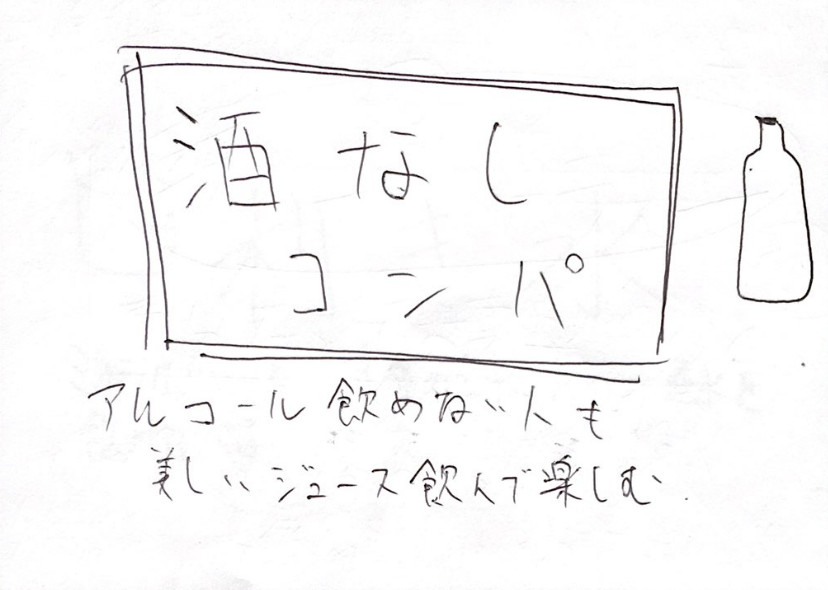 酒なし
コンパ
アルコール飲めない人も
美しいジュース飲んで楽しむ.